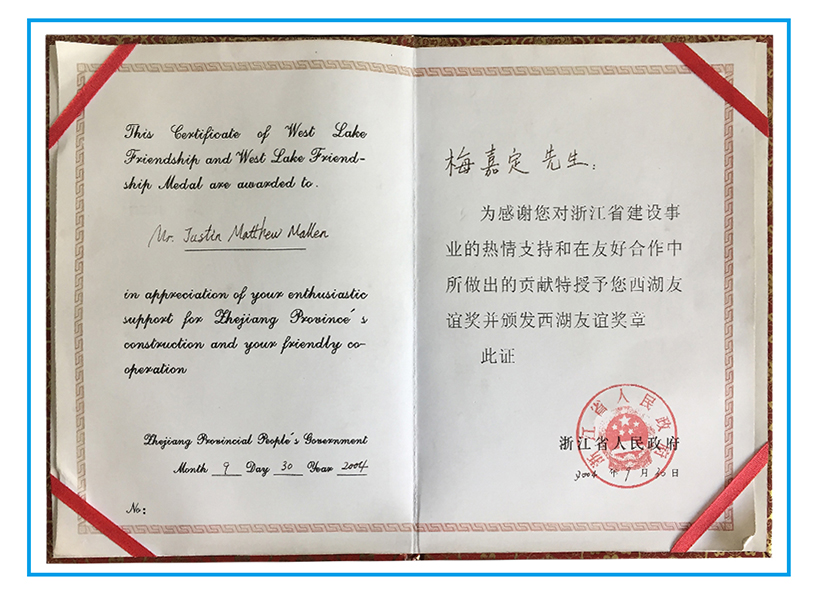 This Certificate of West Lake
Friendship and West Lake Friend-
ship Medal are awarded to.
Mr. Justin Matthew Mallen
in appreciation of your enthusiastic
support for Zhejiang Province´s
construction and your friendly co-
operation
Zhejiang Provincial People´s Government
Month 9 Day 30 Year 2004
No:
梅嘉定 先生:
为感谢您对浙江省建设事
业的热情支持和在友好合作中
所做出的贡献特授予您西湖友
谊奖并颁发西湖友谊奖章
此证
浙江省人民政府
浙江省人民政府
2004 年 9 月 30 日